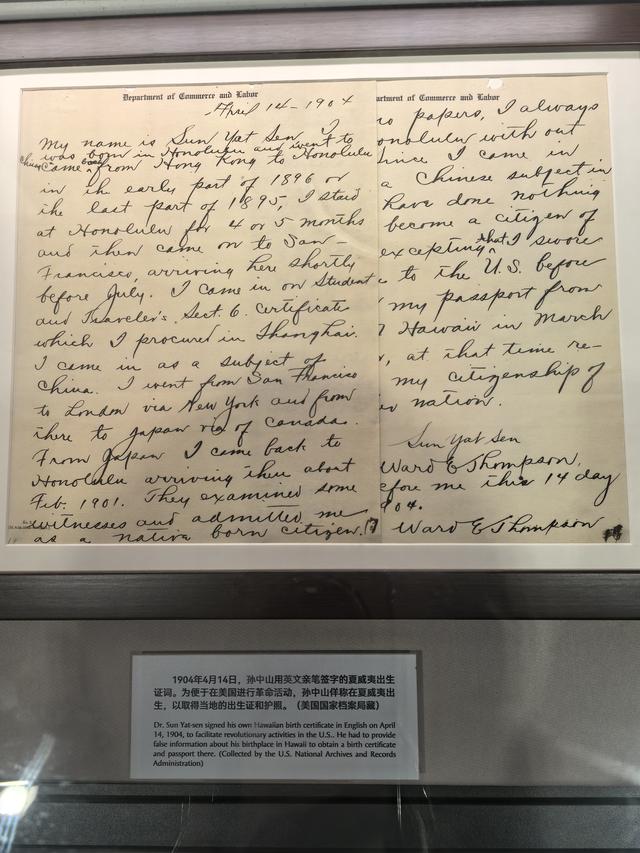 Department of Commerce and Labor
April 14-1904
My name is Sun Yat Sen, I
was born in Honolulu and went to
China came back from Hong Kong to Honolulu
in the early part of 1896 or
the last part of 1895, I staid
at Honolulu for 4 or 5 months
and then came on to San-
Francisco, arriving here shortly
before July. I came in on Student
and Traveler's Sect. 6. certificate
which I procured in Shanghai.
I came in as a subject of
China. I went from San Francisco
to London via New York and from
there to Japan via of Canada.
From Japan I came back to
Honolulu arriving there about
Feb. 1901. They examined some
witnesses and admitted me
as a native born citizen.
artment of Commerce and Labor
no papers, I always
onolulu with out
since I came in
a Chinese subject in
have done nothing
become a citizen of
excepting that I swore
to the U.S. before
my passport from
Hawaii in March
, at that time re-
my citizenship of
nation.
Sun Yat Sen
Ward E Thompson,
efore me this 14 day
904.
Ward E Thompson
1904年4月14日，孙中山用英文亲笔签字的夏威夷出生
证词。为便于在美国进行革命活动，孙中山佯称在夏威夷出
生，以取得当地的出生证和护照。（美国国家档案局藏）
Dr. Sun Yat-sen signed his own Hawaiian birth certificate in English on April
14, 1904, to facilitate revolutionary activities in the U.S.. He had to provide
false information about his birthplace in Hawaii to obtain a birth certificate
and passport there. (Collected by the U.S. National Archives and Records
Administration)